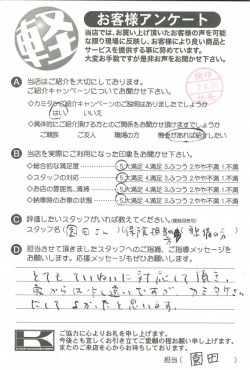 軽
お客様アンケート
当店では、お買い上げ頂いたお客様の声を可能
な限り現場に反映し、お客様により良い商品と
サービスを提供する事に努めています。
大変お手数ですが是非お声をお聞かせ下さい。
A 当店はご紹介を大切にしております。
ご紹介キャンペーンについてお聞かせ下さい。
◇カミタからご紹介キャンペーンのご説明はありましたでしょうか
はい いいえ
◇具体的にご紹介頂ける方とのご関係をお聞かせ頂けますでしょうか
ご親族 ご友人 職場の方 機会があれば紹介したい
B 当店を実際にご利用になった印象をお聞かせ下さい。
◇総合的な満足度 5.大満足 4.満足 3.ふつう 2.やや不満 1.不満
◇スタッフの対応 5.大満足 4.満足 3.ふつう 2.やや不満 1.不満
◇お店の雰囲気、清掃 5.大満足 4.満足 3.ふつう 2.やや不満 1.不満
◇納車時のお車の状態 5.大満足 4.満足 3.ふつう 2.やや不満 1.不満
C 評価したいスタッフがいれば教えてください。
スタッフ名( 園田さん )(保険担当 整備の方 )
D 担当させて頂きましたスタッフへのご指摘、ご指導メッセージを
お願いします。応援メッセージもぜひお願いします。
とてもていねいに対応して頂き、
家からは少し遠いですがカミタさん
にしてよかったと思います。
K
ご協力に心よりお礼を申し上げます。
今後とも宜しくお引き立てご愛顧の程お願い申し上げます。
またのご来店を心からお待ちしております。
担当( 園田 )